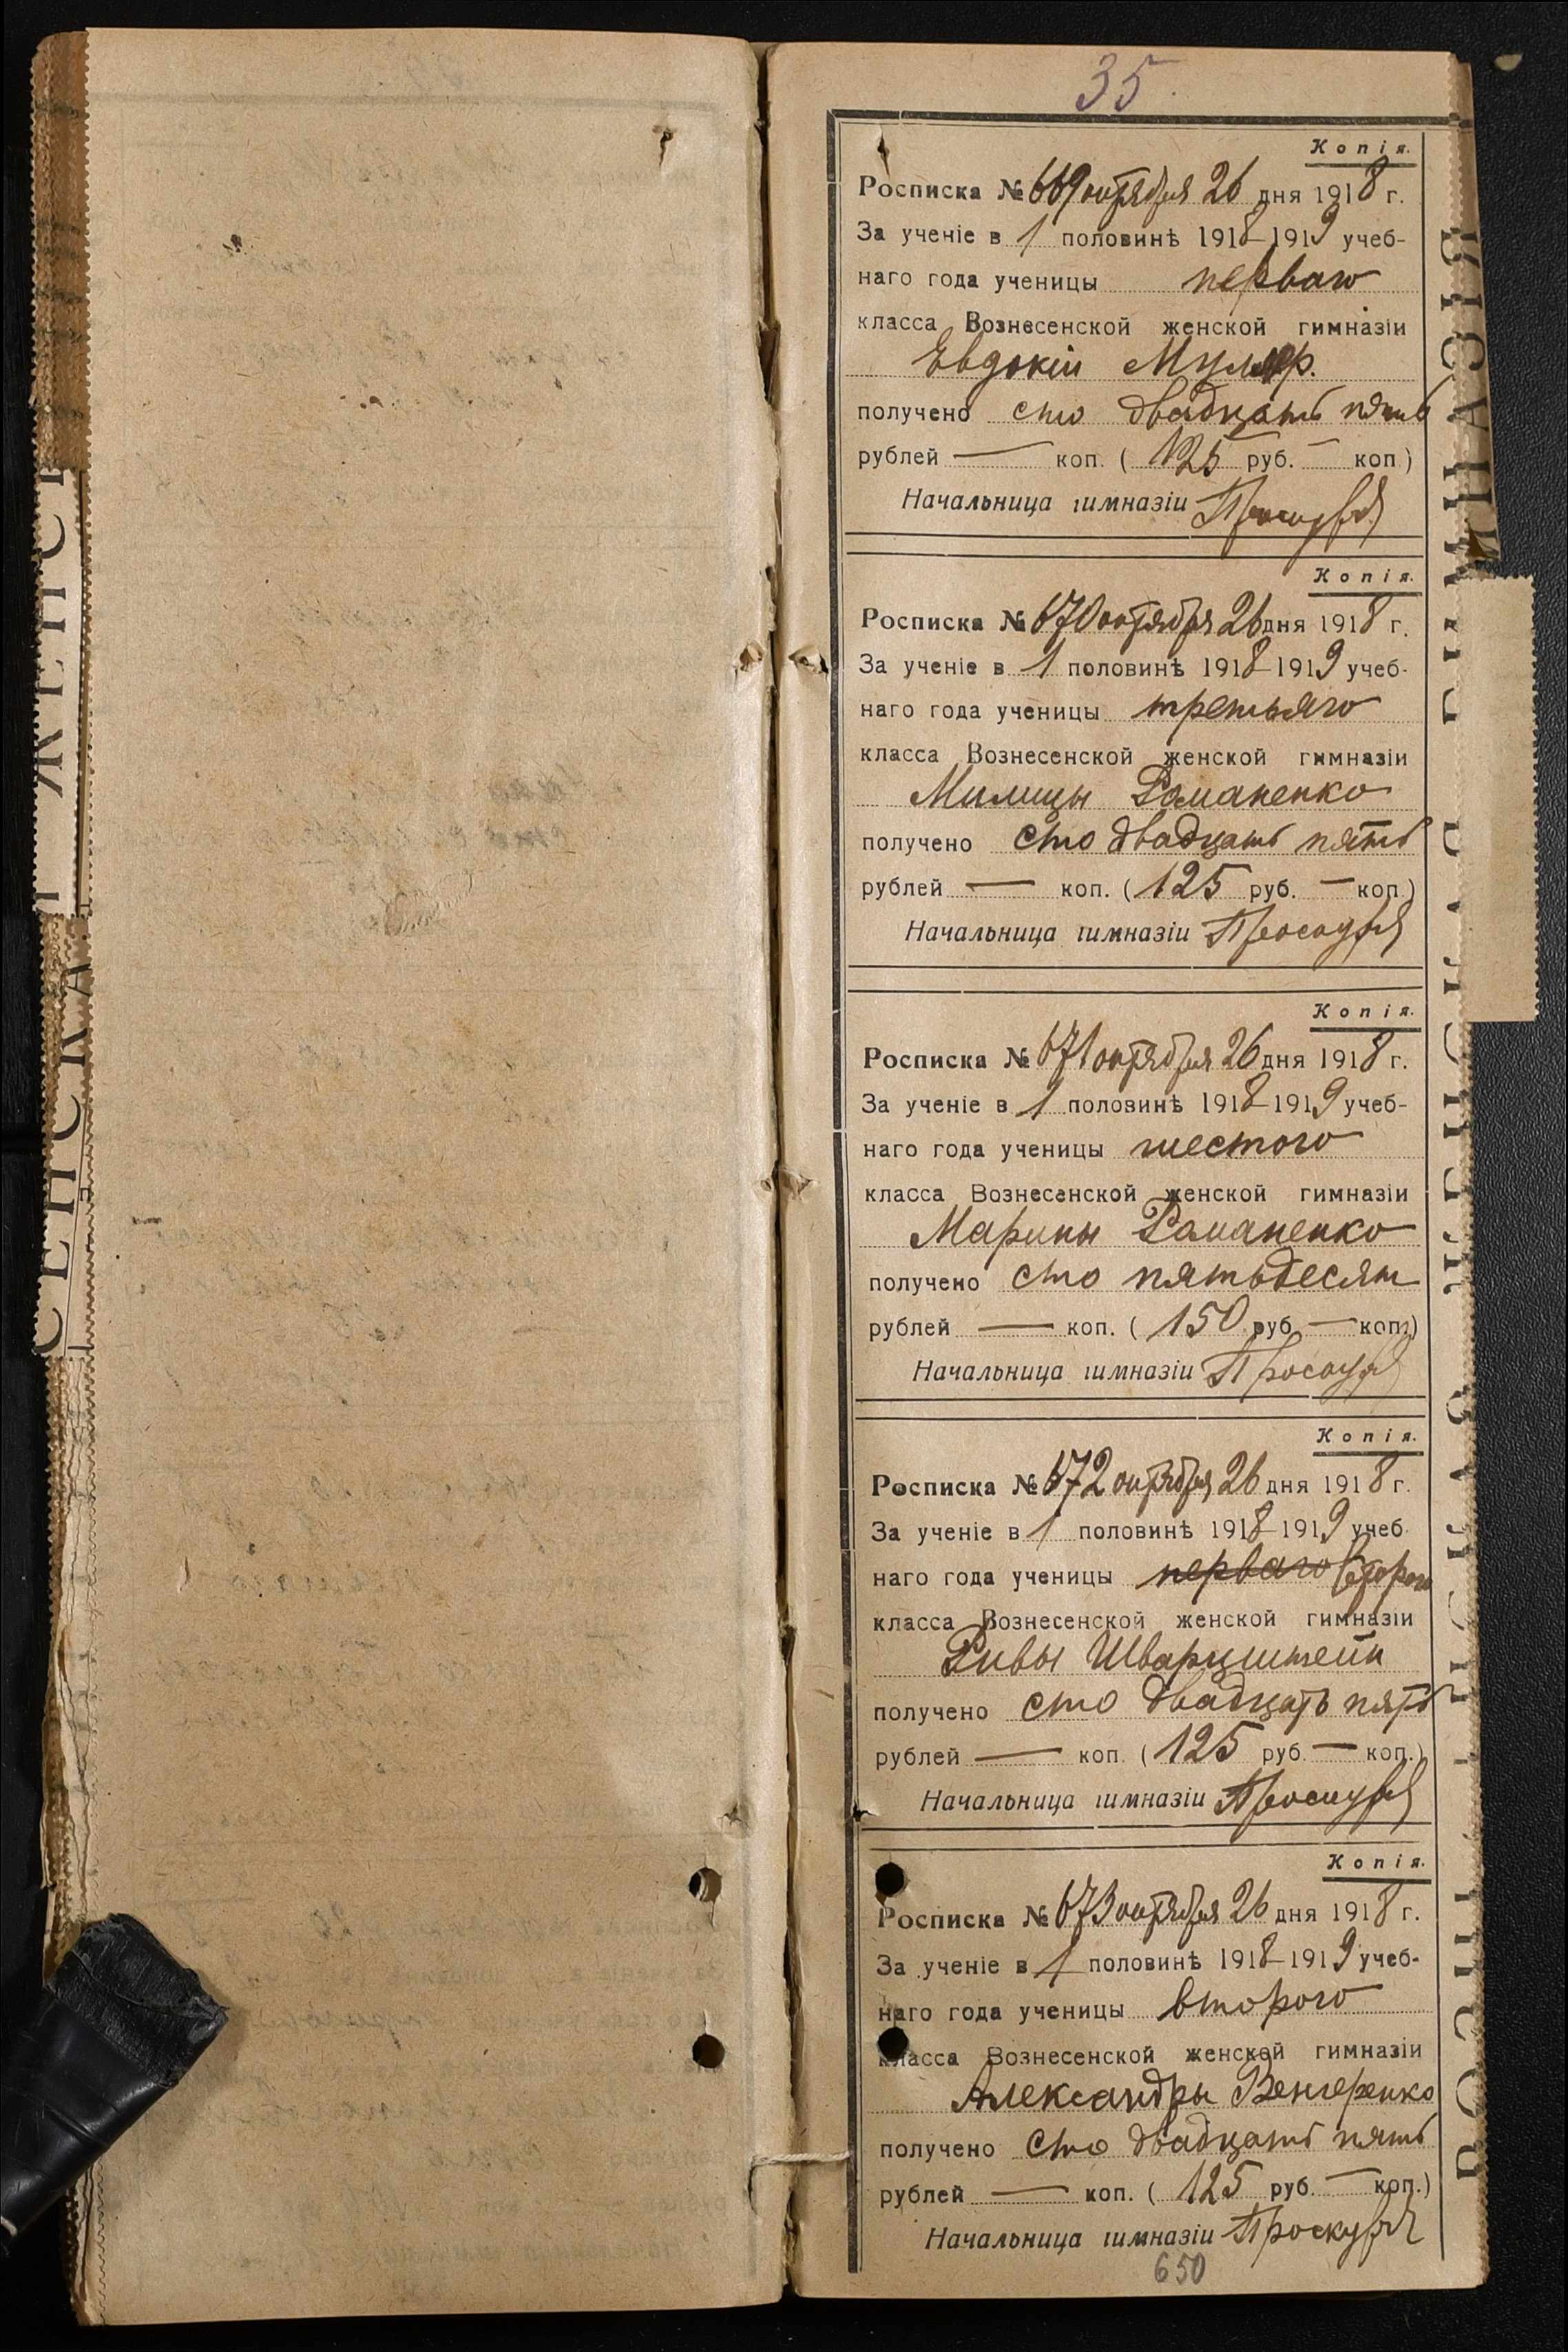 35
Копія.
Росписка № 669 октября 26 дня 1918 г.
За ученіе в 1 половинѣ 1918-1919 учеб-
наго года ученицы перваго
класса Вознесенской женской гимназіи
Евдокіи
получено сто двадцать пять
рублей — коп. ( 125 руб. — коп )
Начальница гимназіи
Копія.
Росписка № 670 октября 26 дня 1918 г.
За ученіе в 1 половинѣ 1918-1919 учеб-
наго года ученицы третьяго
класса Вознесенской женской гимназіи
Милицы Романенко
получено сто двадцать пять
рублей — коп. ( 125 руб. — коп.)
Начальница гимназіи
Копія.
Росписка № 671 октября 26 дня 1918 г.
За ученіе в 1 половинѣ 1918-1919 учеб-
наго года ученицы шестого
класса Вознесенской женской гимназіи
Марины Романенко
получено сто пятьдесят
рублей — коп. ( 150 руб. — коп.)
Начальница гимназіи
Копія.
Росписка № 672 октября 26 дня 1918 г.
За ученіе в 1 половинѣ 1918-1919 учеб
наго года ученицы перваго второго
класса Вознесенской женской гимназіи
Ривы Шварцштейн
получено сто двадцать пять
рублей — коп. ( 125 руб. — коп.)
Начальница гимназіи
Копія.
Росписка № 673 октября 26 дня 1918 г.
За ученіе в 1 половинѣ 1918-1919 учеб-
наго года ученицы второго
класса Вознесенской женской гимназіи
Александры Венгеренко
получено сто двадцать пять
рублей — коп. ( 125 руб. — коп.)
Начальница гимназіи
650